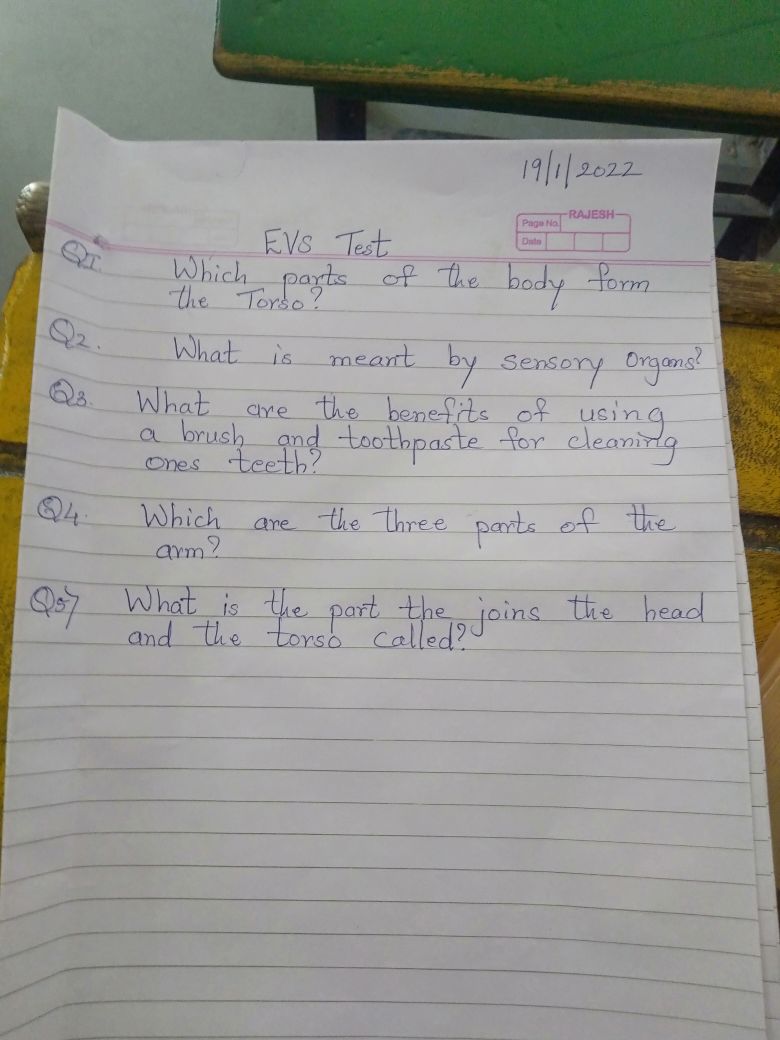 19/1/2022
RAJESH
Page No.
Date
EVS Test
Q1. Which parts of the body form
the Torso?
Q2. What is meant by sensory Organs?
Q3. What are the benefits of using
a brush and toothpaste for cleaning
ones teeth?
Q4. Which are the three parts of the
arm?
Q5) What is the part the joins the head
and the torso called?